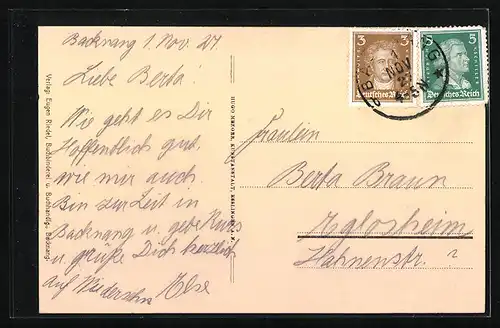 Backnang 1. Nov. 27.
Liebe Berta!
Wie geht es Dir
Hoffentlich gut,
wie mir auch.
Bin zur Zeit in
Backnang u. gebe Kurs
u. grüße Dich herzlich
auf Wiedersehn Else
Verlag: Eugen Riedel, Buchbinderei u. Buchhandlg., Backnang.
3
3
Deutsches Reich
5
5
Deutsches Reich
Fräulein
Berta Braun
Iglosheim
Hahnenstr. 2